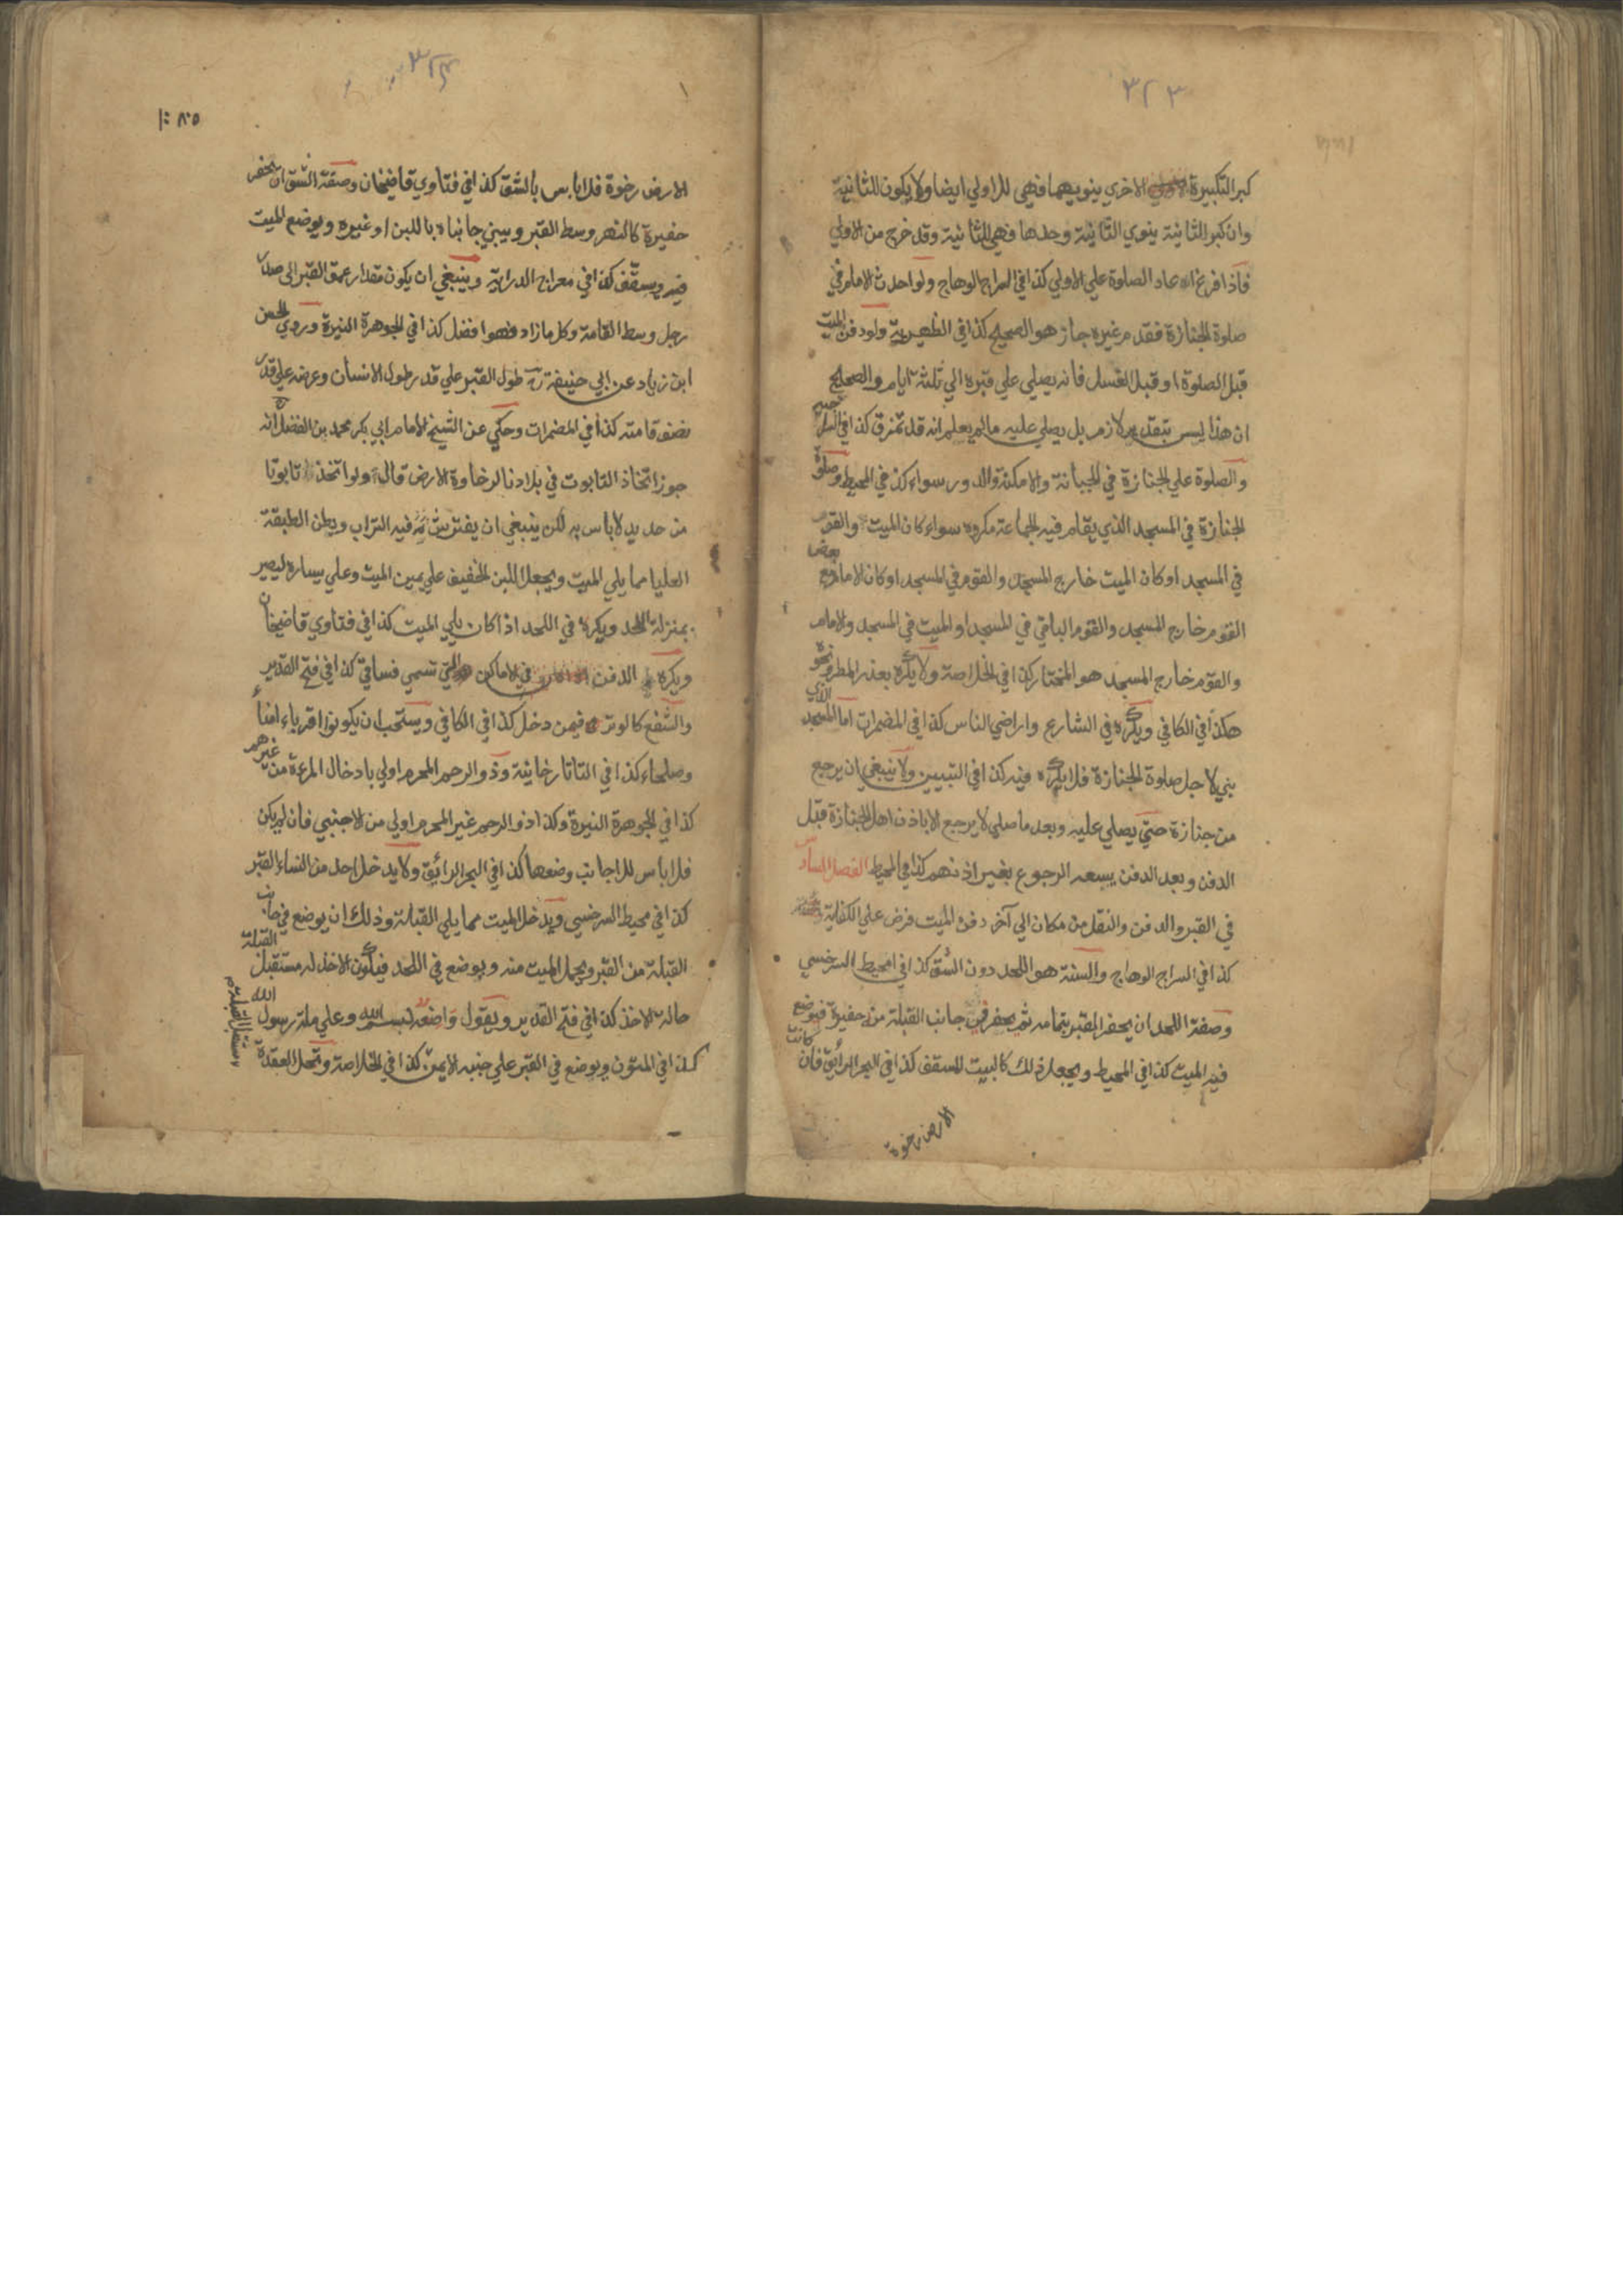 ٣٢٣
كبر التكبيرة الاخري ينويهما فهي للاولي ايضا ولا يكون للثانية
وان كبر الثانية ينوي الثانية وحدها فهي للثانية وقد خرج من الاولي
فاذا فرغ اعاد الصلوة علي الاولي كذا في السراج الوهاج ولو احدث الامام في
صلوة الجنازة فقدم غيره جاز هو الصحيح كذا في الظهيرية ولو دفن الميت
قبل الصلوة او قبل الغسل فانه يصلي علي قبره الي ثلثة ايام والصحيح
ان هذا ليس بتقدير لازم بل يصلي عليه ما لم يعلم انه قد تمزق كذا في السراجية
والصلوة علي الجنازة في الجبانة والامكنة والدور سواء كذا في المحيط وصلوة
الجنازة في المسجد الذي يقام فيه الجماعة مكروه سواء كان الميت والقوم
في المسجد او كان الميت خارج المسجد والقوم في المسجد او كان الامام مع بعض
القوم خارج المسجد والقوم الباقي في المسجد او الميت في المسجد والامام
والقوم خارج المسجد هو المختار كذا في الخلاصة ولا يكره بعذر المطر ونحوه
هكذا في الكافي ويكره في الشارع واراضي الناس كذا في المضمرات اما المسجد الذي
بني لاجل صلوة الجنازة فلا يكره فيه كذا في التبيين ولا ينبغي ان يرجع
من جنازة حتي يصلي عليه وبعد ما صلي لا يرجع الا باذن اهل الجنازة قبل
الدفن وبعد الدفن يسعه الرجوع بغير اذنهم كذا في المحيط الفصل السادس
في القبر والدفن والنقل من مكان الي آخر دفن الميت فرض علي الكفاية
كذا في السراج الوهاج والسنة هو اللحد دون الشق كذا في محيط السرخسي
وصفة اللحد ان يحفر القبر بتمامه ثم يحفر في جانب القبلة منه حفيرة فيوضع
فيه الميت كذا في المحيط ويجعل ذلك كالبيت المسقف كذا في البحر الرائق فان كانت
الارض رخوة
الارض رخوة فلا باس بالشق كذا في فتاوي قاضيخان وصفة الشق ان يحفر
حفيرة كالنهر وسط القبر ويبني جانباه باللبن او غيره ويوضع الميت
فيه ويسقف كذا في معراج الدراية وينبغي ان يكون مقدار عمق القبر الي صدر
رجل وسط القامة وكل ما زاد فهو افضل كذا في الجوهرة النيرة وروي الحسن
ابن زياد عن ابي حنيفة طول القبر علي قدر طول الانسان وعرضه علي قدر
نصف قامته كذا في المضمرات وحكي عن الشيخ الامام ابي بكر محمد بن الفضل انه
جوز اتخاذ التابوت في بلادنا لرخاوة الارض قال ولو اتخذ تابوتا
من حديد لا باس به لكن ينبغي ان يفترش فيه التراب ويطين الطبقة
العليا مما يلي الميت ويجعل اللبن الخفيف علي يمين الميت وعلي يساره ليصير
بمنزلة اللحد ويكره في اللحد اذا كان يلي الميت كذا في فتاوي قاضيخان
ويكره الدفن في الاماكن التي تسمي فساقي كذا في فتح القدير
والشفع كالوتر فيمن دخل كذا في الكافي ويستحب ان يكونوا اقرباء امناء
وصلحاء كذا في التاتارخانية وذو الرحم المحرم اولي بادخال المرءة من غيرهم
كذا في الجوهرة النيرة وكذا ذو الرحم غير المحرم اولي من الاجنبي فان لم يكن
فلا باس للاجانب وضعها كذا في البحر الرائق ولا يدخل احد من النساء القبر
كذا في محيط السرخسي ويدخل الميت مما يلي القبلة وذلك ان يوضع في جانب
القبلة من القبر ويحمل الميت منه ويوضع في اللحد فيكون الاخذ له مستقبل القبلة
حالة الاخذ كذا في فتح القدير ويقول واضعه بسم الله وعلي ملة رسول الله
كذا في المتون ويوضع في القبر علي جنبه الايمن كذا في الخلاصة وتحل العقدة
مستقبل القبلة